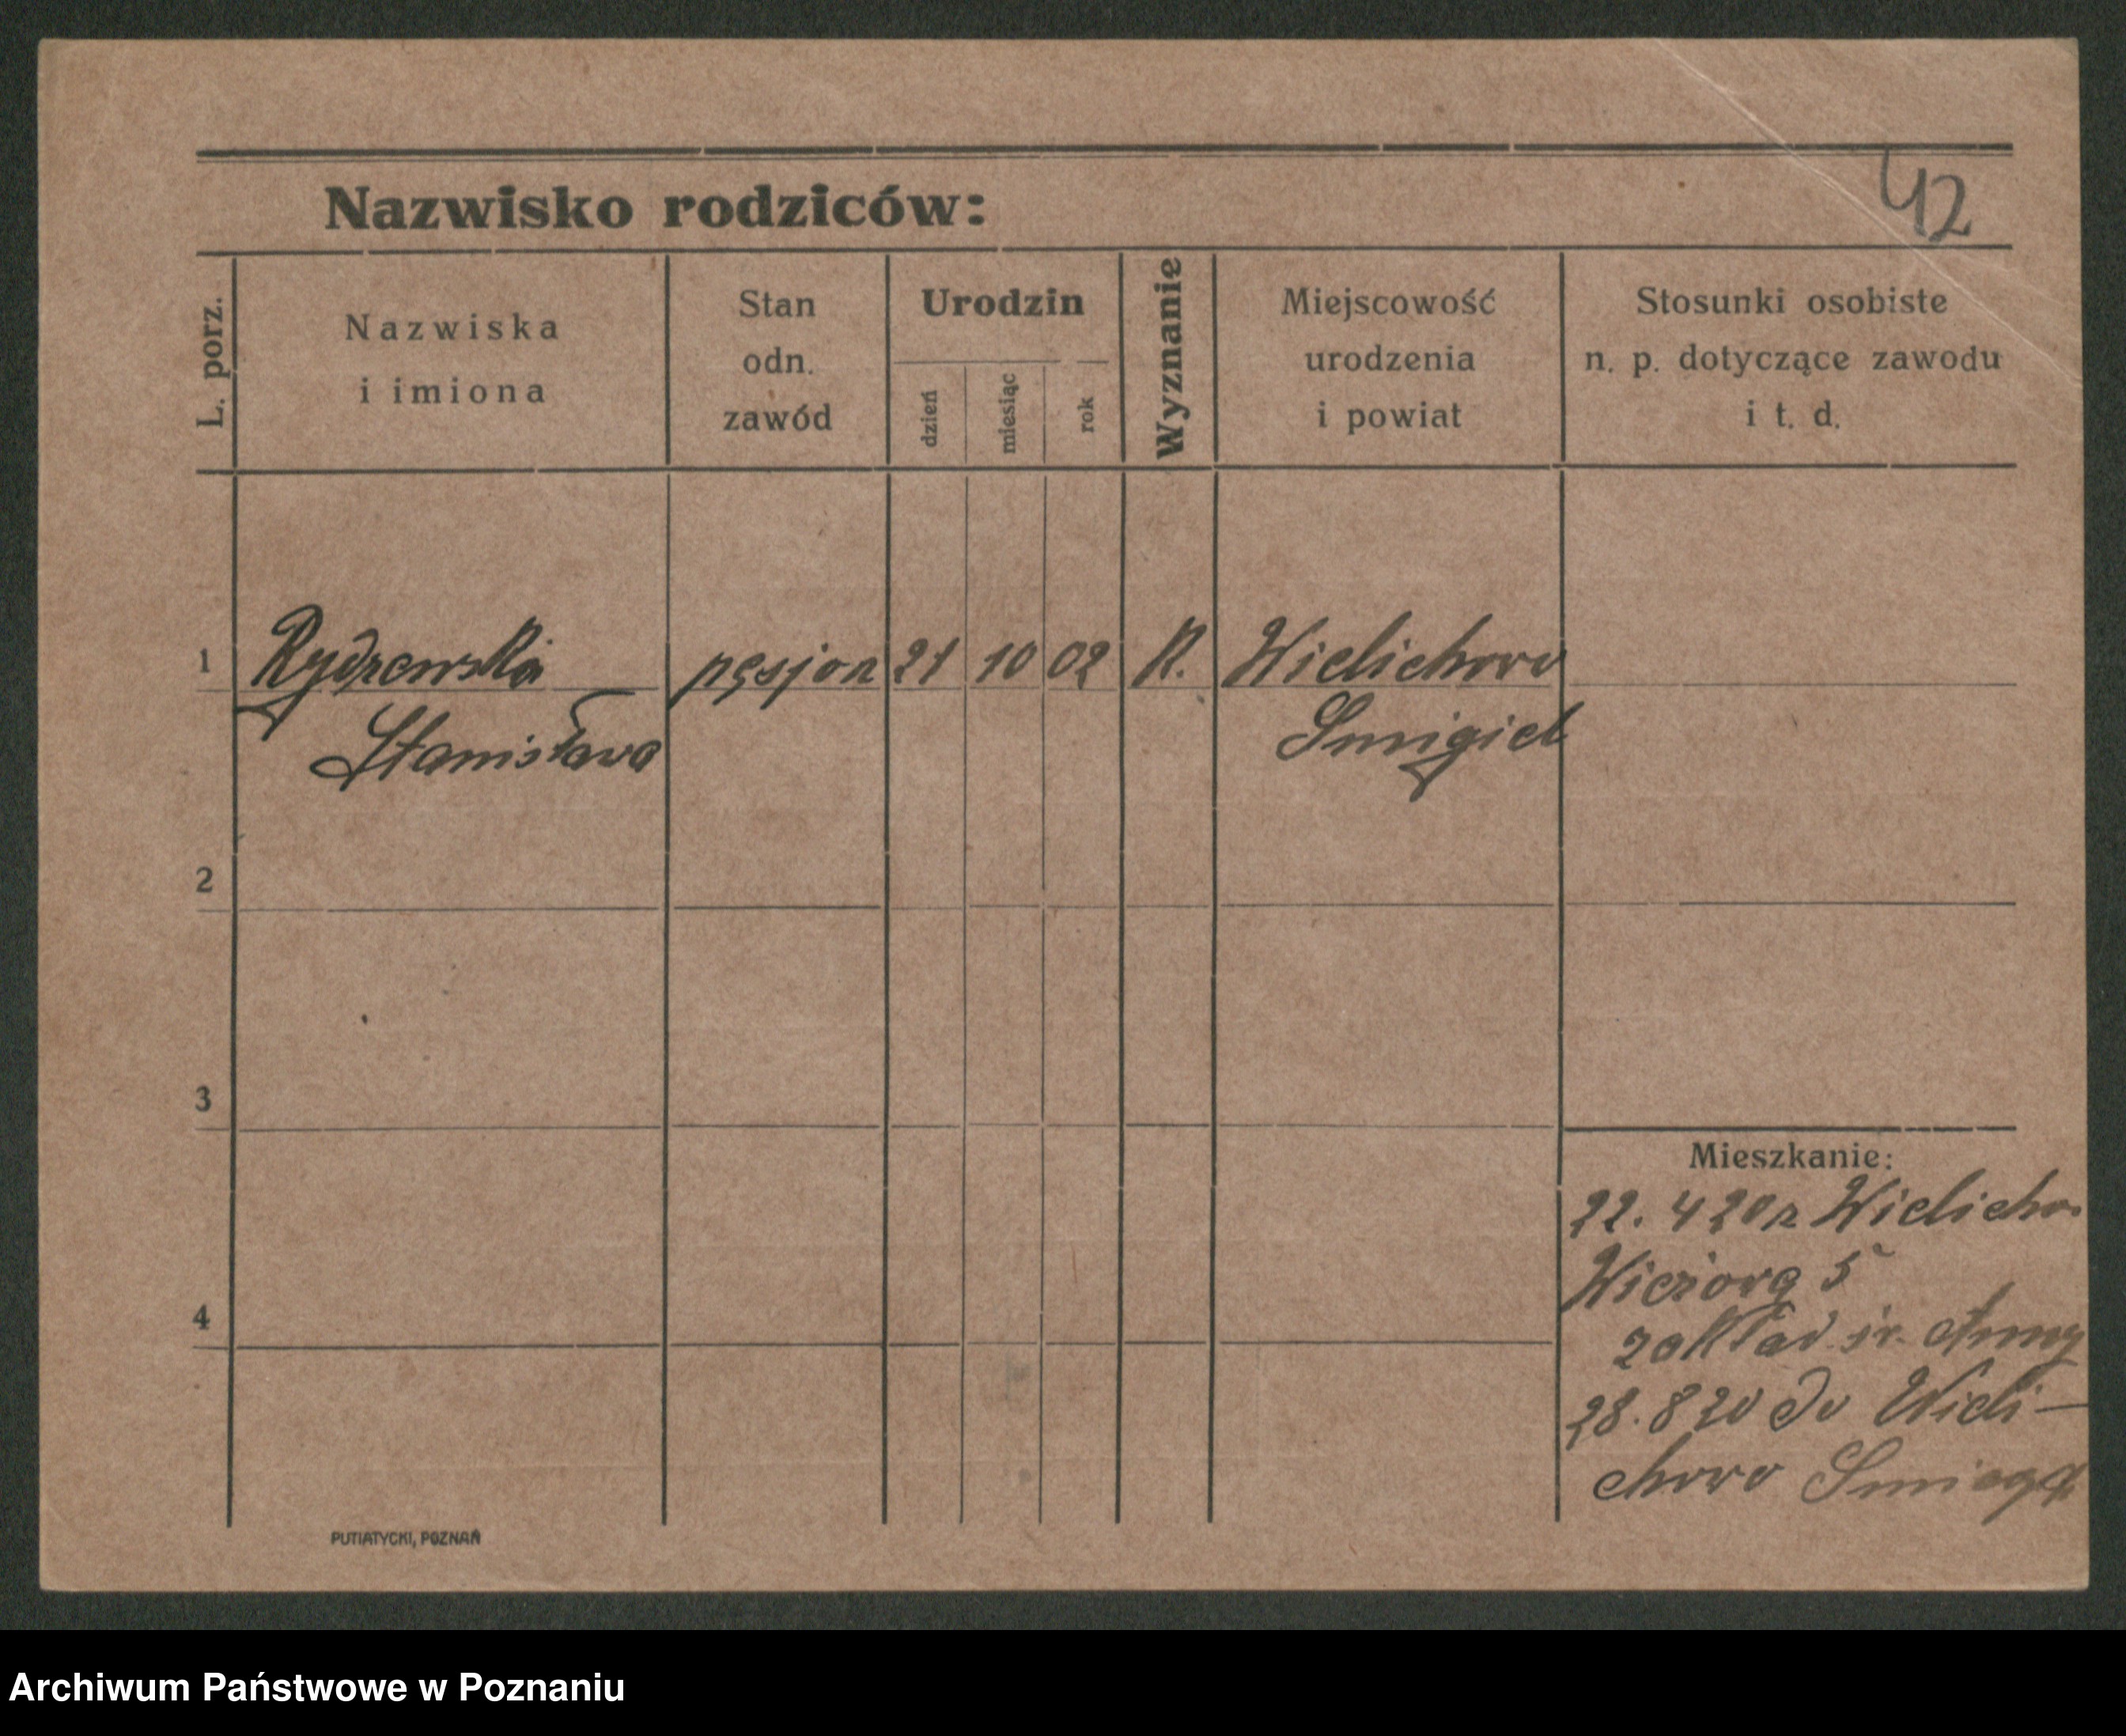 42
Nazwisko rodziców:
L. porz.
Nazwiska
i imiona
Stan
odn.
zawód
Urodzin
dzień
miesiąc
rok
Wyznanie
Miejscowość
urodzenia
i powiat
Stosunki osobiste
n. p. dotyczące zawodu
i t. d.
1 Rydzewska pęsjon 21 10 02 K. Wielichowo
Stanisława Smigiel
2
3
4
Mieszkanie:
22. 4 20 z Wielicho.
5
zakład św. Anny
28. 8 20 do Wieli-
chowo
PUTIATYCKI, POZNAŃ
Archiwum Państwowe w Poznaniu